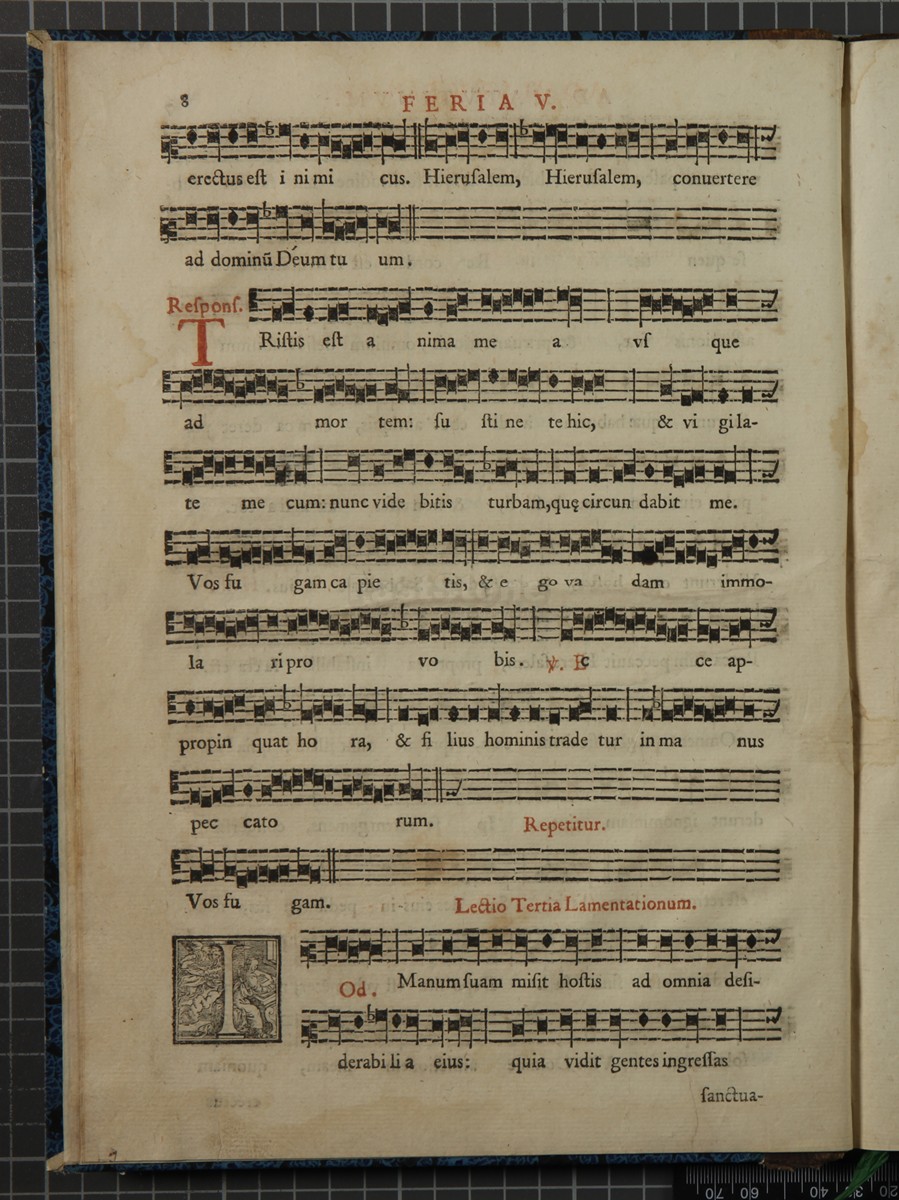 8
FERIA V.
erectus est i ni mi cus. Hierusalem, Hierusalem, conuertere
ad dominū Déum tu um.
Respons.
TRistis est a nima me a vs que
ad mor tem: su sti ne te hic, & vi gi la-
te me cum: nunc vide bitis turbam, quę circun dabit me.
Vos fu gam ca pie tis, & e go va dam immo-
la ri pro vo bis. ℣. Ec ce ap-
propin quat ho ra, & fi lius hominis trade tur in ma nus
pec cato rum. Repetitur.
Vos fu gam. Lectio Tertia Lamentationum.
IOd. Manum suam misit hostis ad omnia desi-
derabi li a eius: quia vidit gentes ingressas
sanctua-